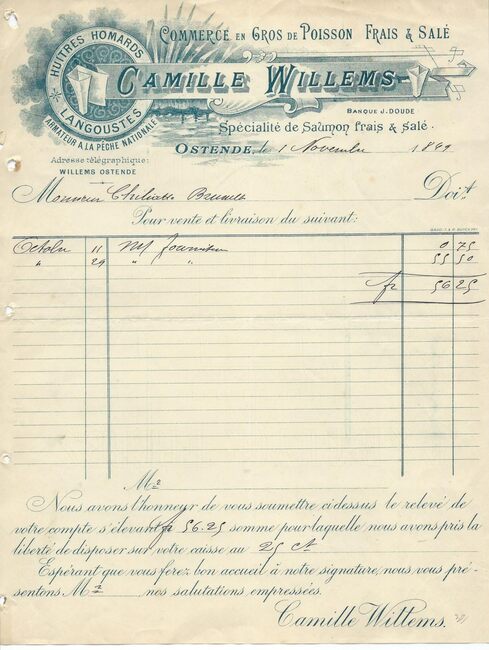 COMMERCE EN GROS DE POISSON FRAIS & SALÉ
HUÎTRES HOMARDS
LANGOUSTES
ARMATEUR A LA PÊCHE NATIONALE
CAMILLE WILLEMS
BANQUE J. DOUDE
Spécialité de Saumon frais & salé.
Adresse télégraphique:
WILLEMS OSTENDE
OSTENDE, le 1 Novembre 1899
Monsieur Bruxelles Doit
Pour vente et livraison du suivant:
Octobre 11 M/ fourniture 0 75
" 29 " " 55 50
fr 56 25
M
Nous avons l'honneur de vous soumettre ci dessus le relevé de
votre compte s'élevant fr 56.25 somme pour laquelle nous avons pris la
liberté de disposer sur votre caisse au 25 ct
Espérant que vous ferez bon accueil à notre signature, nous vous pré-
sentons M nos salutations empressées.
Camille Willems.